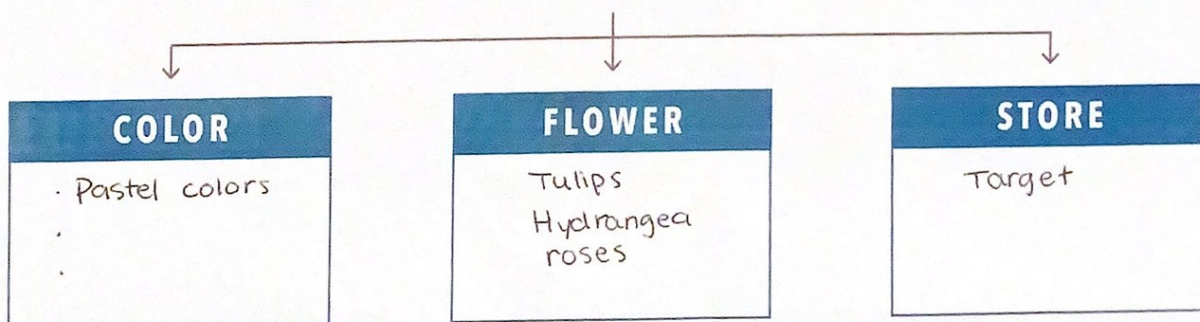 COLOR
· Pastel colors
·
·
FLOWER
Tulips
Hydrangea
roses
STORE
Target